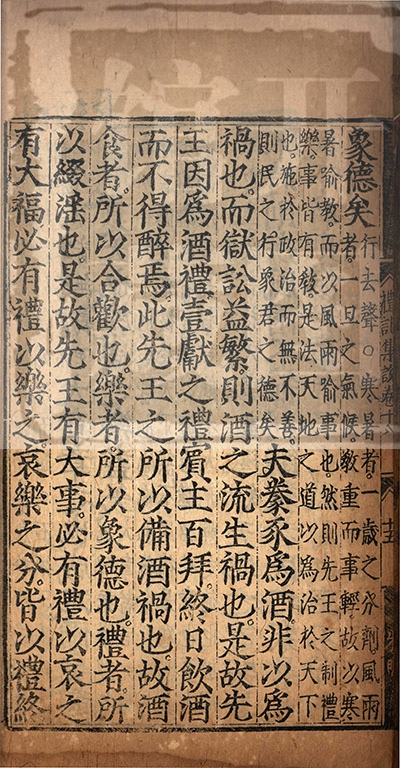 禮記集說卷十
十五
象德矣。
行去聲○寒暑者。一歲之分劑風雨
者。一旦之氣候。敎重而事輕。故以寒
暑喻敎。而以風雨喻事也。然則先王之制禮
樂。事皆有敎。是法天地之道以爲治於天下
也。施於政治而無不善。
則民之行象君之德矣
夫豢豕爲酒。非以爲
禍也。而獄訟益繁。則酒之流生禍也。是故先
王因爲酒禮。壹獻之禮。賓主百拜。終日飮酒
而不得醉焉。此先王之所以備酒禍也。故酒
食者。所以合歡也。樂者。所以象德也。禮者。所
以綴淫也。是故先王有大事。必有禮以哀之
有大福。必有禮以樂之。哀樂之分。皆以禮終